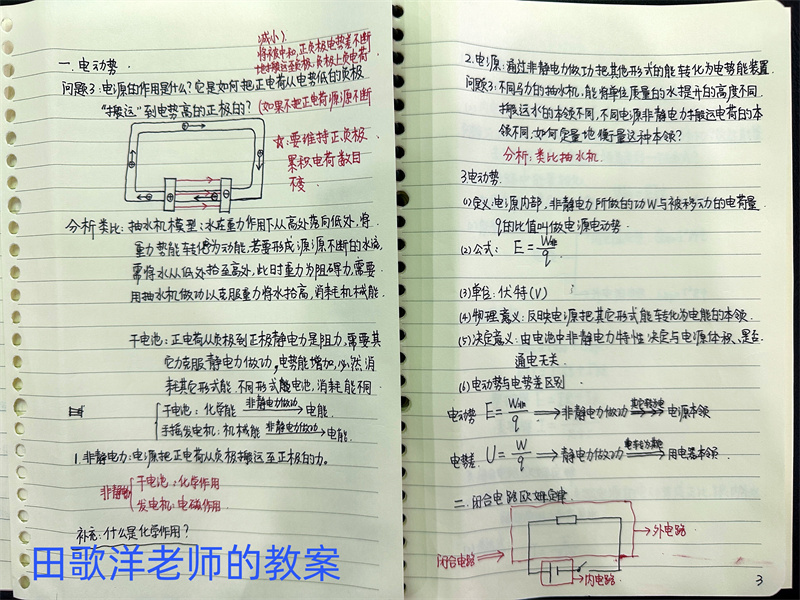 减小)
将被中和,正负极电势差不断
地搬运至负极,负极上负电荷
一. 电动势.
问题3:电源的作用是什么?它是如何把正电荷从电势低的负极
“搬运”到电势高的正极的?(如果不把正电荷源源不断
☆:要维持正负极、
累积电荷数目
不变.
分析类比:抽水机模型:水在重力作用下从高处落向低处,将
重力势能转化为动能,若要形成源源不断的水流,
需将水从低处抬至高处,此时重力为阻碍力,需要
用抽水机做功以克服重力将水抬高,消耗机械能.
干电池:正电荷从负极到正极静电力是阻力,需要其
它力克服静电力做功,电势能增加,必然消
耗其它形式能.不同形式电池,消耗能不同.
干电池:化学能 非静电力做功→电能.
手摇发电机:机械能 非静电力做功→电能.
1.非静电力:电源把正电荷从负极搬运至正极的力.
非静电力
干电池:化学作用
发电机:电磁作用.
补充:什么是化学作用?
田歌洋老师的教案
2.电源:通过非静电力做功把其他形式的能转化为电势能装置.
问题3:不同马力的抽水机,能将单位质量的水提升的高度不同.
搬运水的本领不同,不同电源非静电力搬运电荷的本
领不同.如何定量地衡量这种本领?
分析:类比抽水机.
3电动势.
(1)定义:电源内部,非静电力所做的功W与被移动的电荷量
q的比值叫做电源电动势.
(2)公式: E=W非/q.
(3)单位:伏特(V)
(4)物理意义:反映电源把其它形式能转化为电能的本领.
(5)决定意义:由电池中非静电力特性决定与电源体积、是否
通电无关.
(6)电动势与电势差区别.
电动势 E=W非/q→非静电力做功→电源本领
电势差. U=W/q→静电力做功→用电器本领.
二.闭合电路欧姆定律.
外电路.
闭合电路
内电路.
3